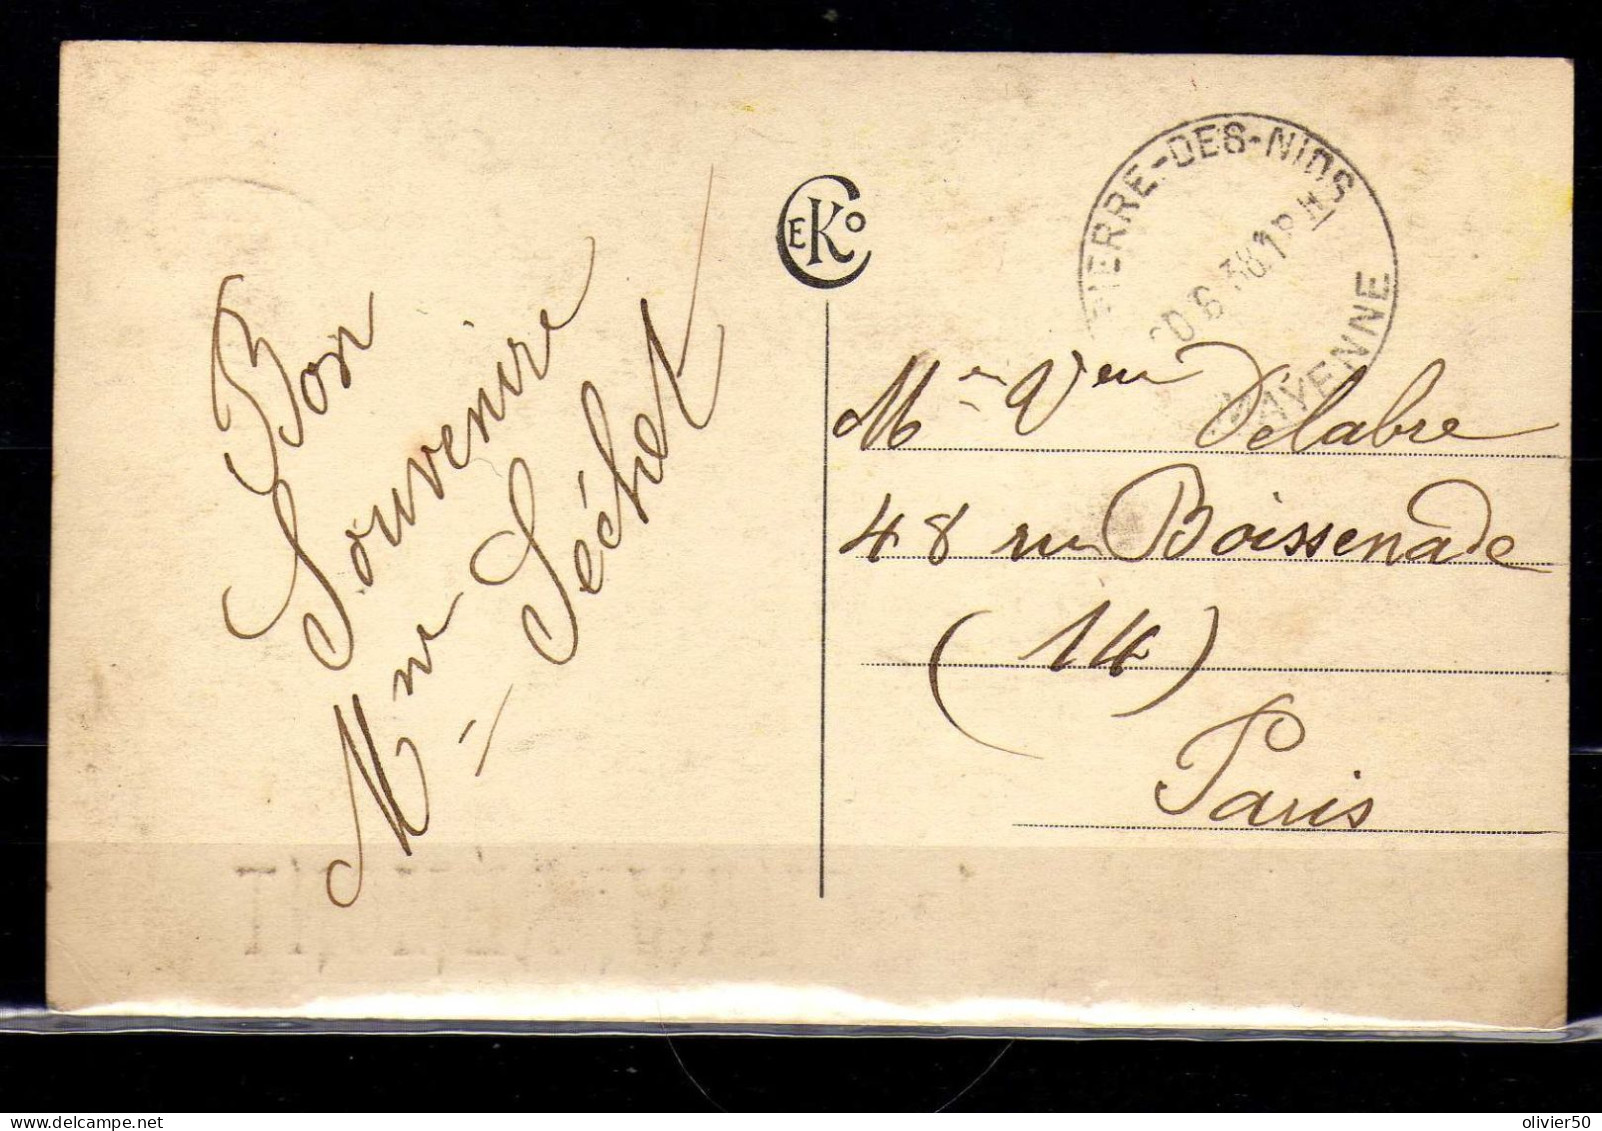 Bon
Souvenire
Mme Séchet
CEKO
PIERRE-DES-NIDS
MAYENNE
Me Veu Delabre
48 rue Boissenade
(14)
Paris
delcampe.net
olivier50